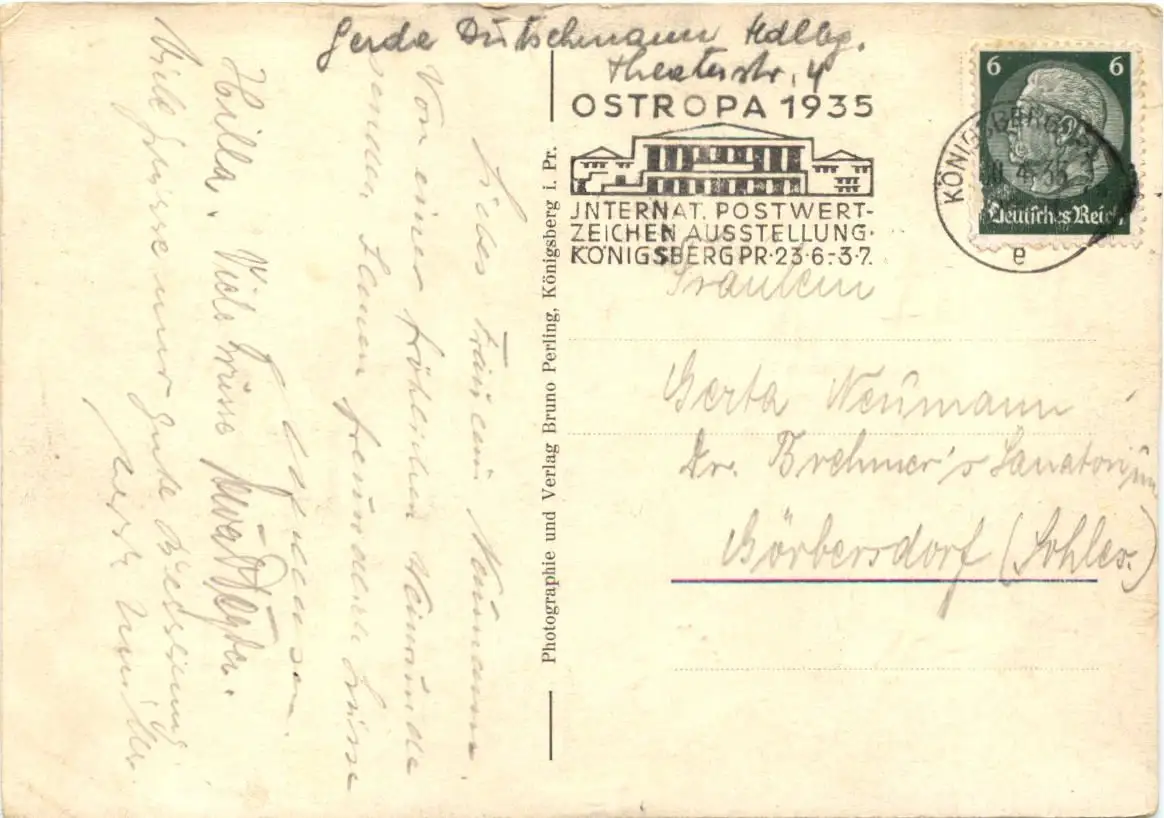 Gerda Dutschmann Hdlbg.
Theaterstr. 4
OSTROPA 1935
JNTERNAT. POSTWERT-
ZEICHEN AUSSTELLUNG·
KÖNIGSBERG PR·23·6-·3·7.
6 6
Deutsches Reich
KÖNIGSBERG
e
Fräulein
Gerta Neumann
Dr. Brehmer's Sanatorium
Görbersdorf (Schles.)
Photographie und Verlag Bruno Perling, Königsberg i. Pr.
Liebes Fräulein Neumann.
Von einer fröhlichen
senden Ihnen freundliche Grüsse
Hilla. Viele Grüsse
Viele Grüsse und gute Besserung